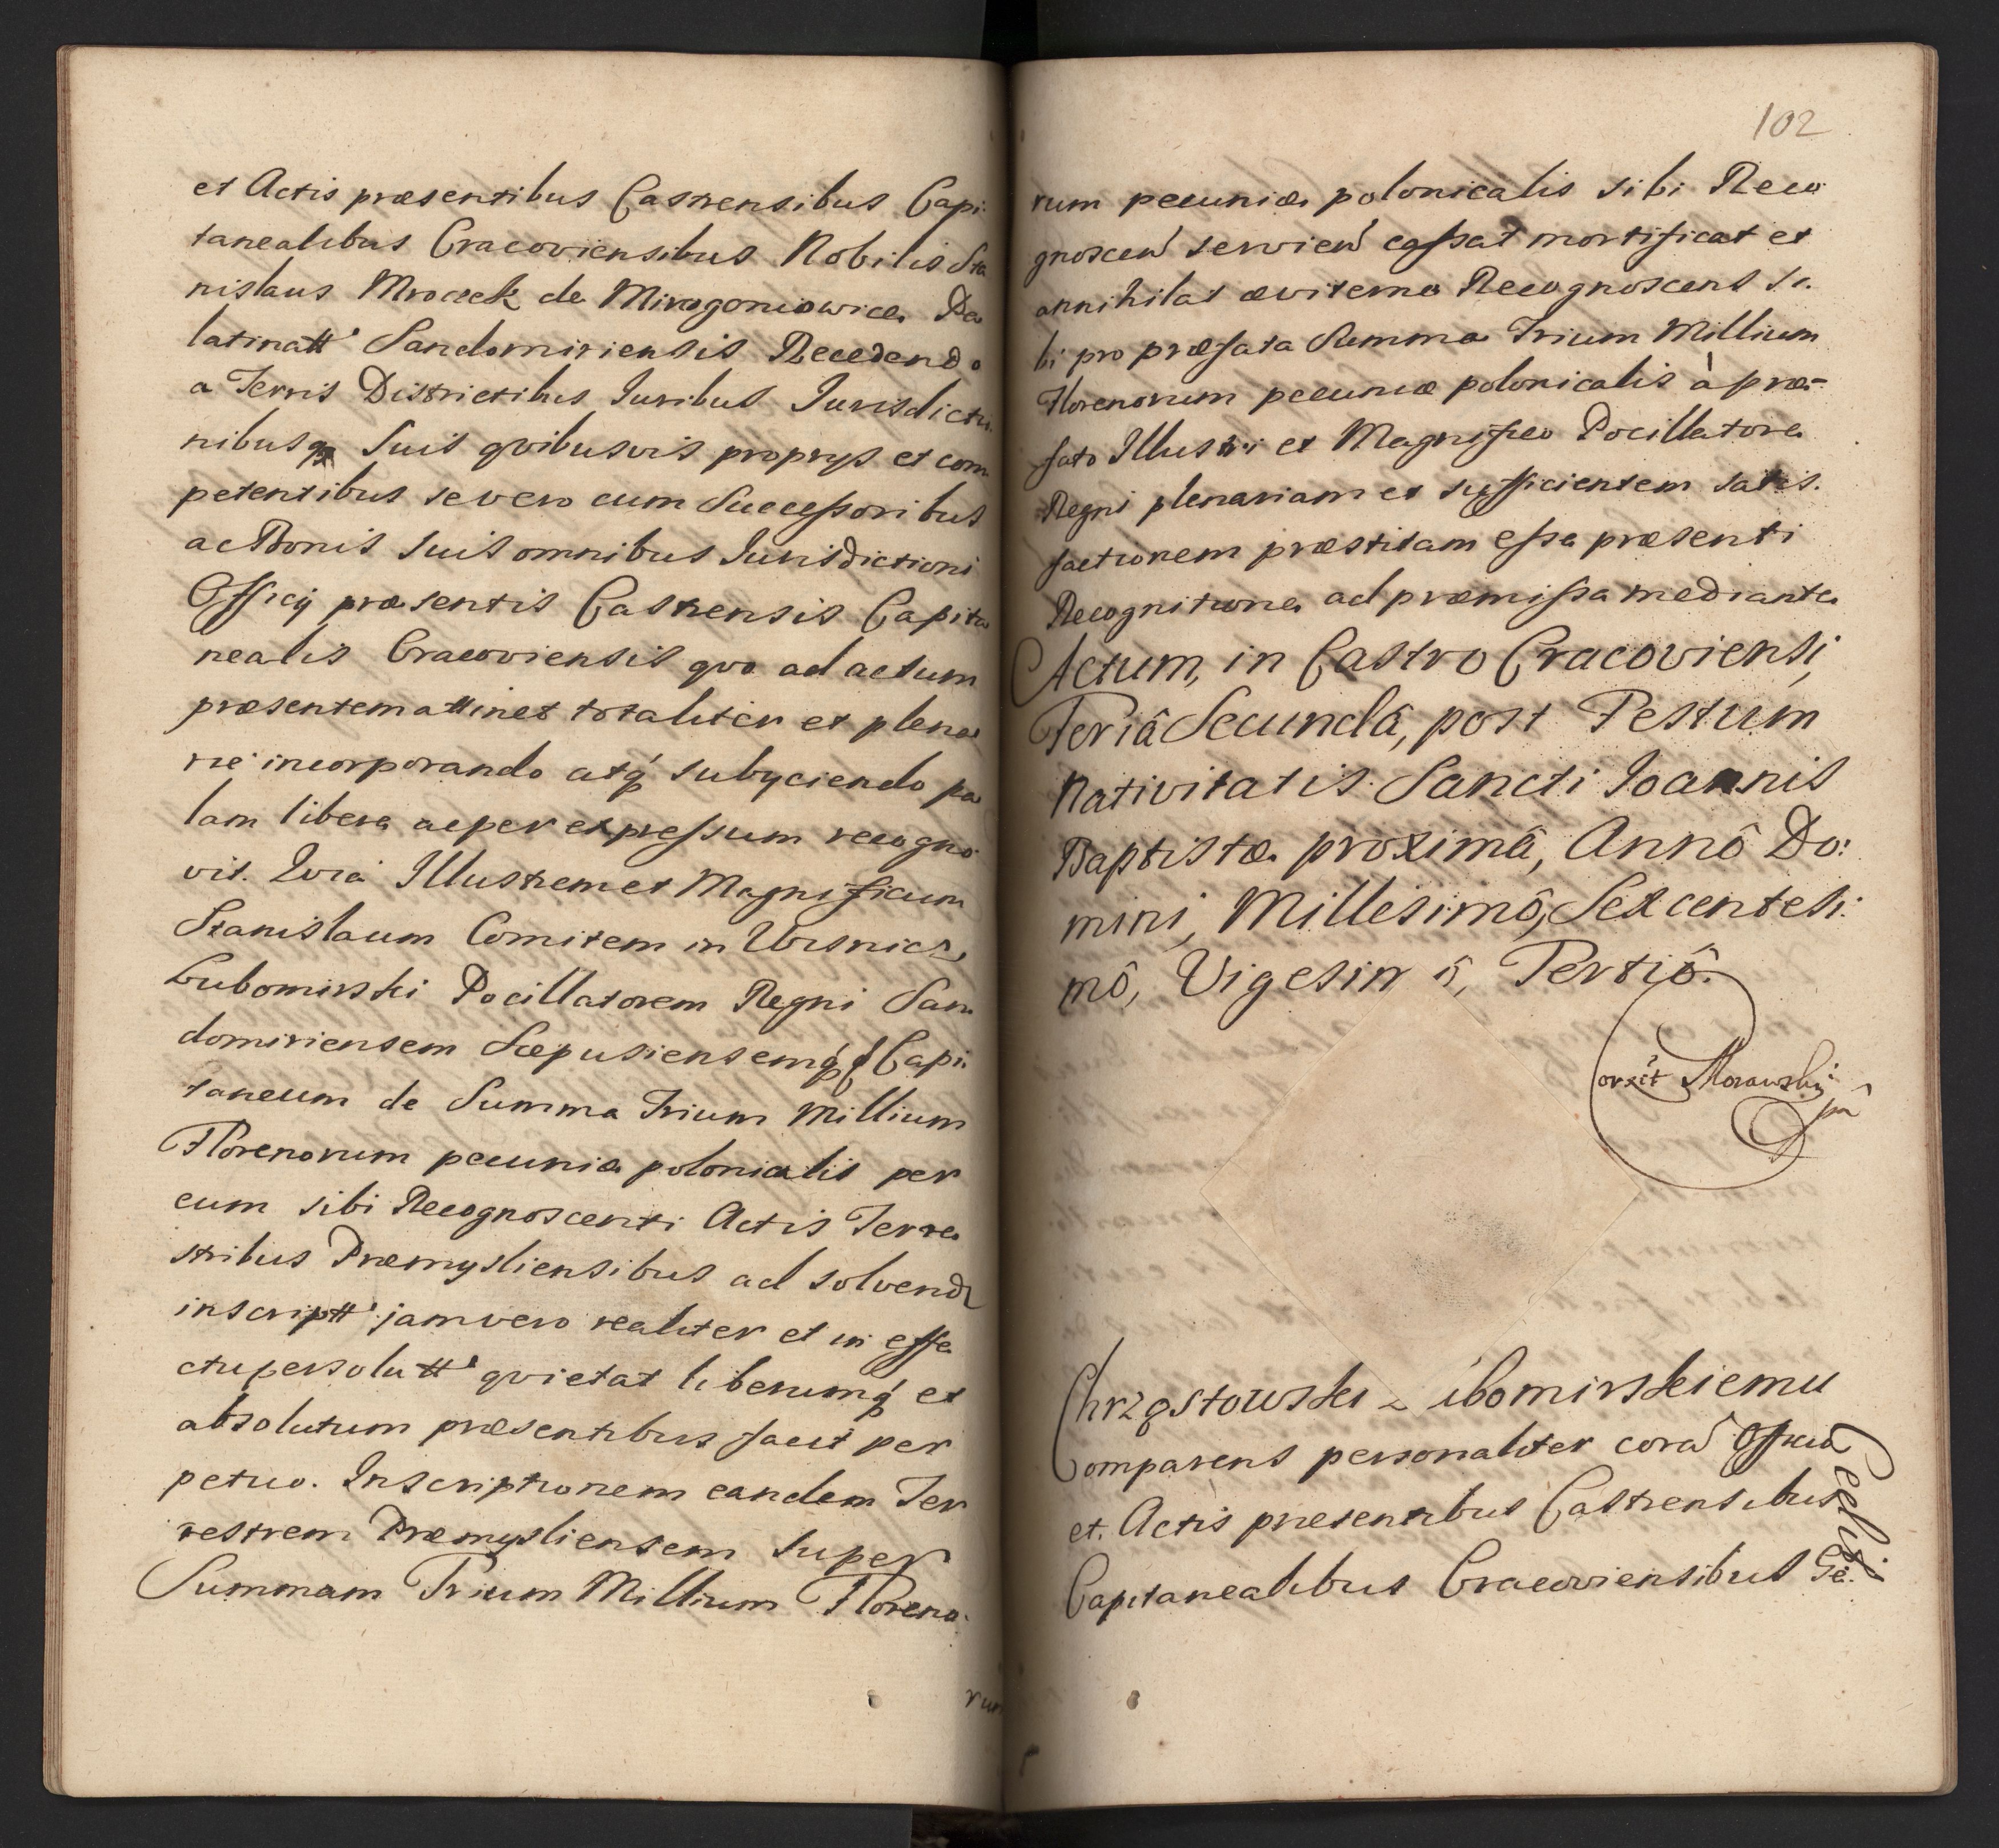 et Actis præsentibus Castrensibus Capi:
tanealibus Cracoviensibus Nobilis Sta
nislaus Mroczek de Mirogoniowice Pa
latinatt' Sandomiriensis Recedendo
a Terris Districtibus Iuribus Iurisdictio
nibusq₃ suis qvibusvis proprys et com
petentibus se vero cum Successoribus
ac Bonis suis omnibus Iurisdictioni
Officij præsentis Castrensis Capita
nealis Cracoviensis qvo ad actum
præsentem attinet totaliter et plena
rie incorporando atq́ subyciendo pa
lam libere ac per expressum recogno
vit. Qvia Illustrem et Magnificum
Stanislaum Comitem in Visnicze
Lubomirski Pocillatorem Regni San
domiriensem Scepusiensemq́ Capi:
taneum de Summa Trium Millium
Florenorum pecuniæ polonicalis per
eum sibi Recognoscenti Actis Terre
stribus Præmysliensibus ad solvend
inscriptt' jam vero realiter et in effe
ctu persolutt' qvietat liberumq́ et
absolutum præsentibus facit per
petuo. Inscriptionem eandem Ter
restrem Præmysliensem super
Summam Trium Millium Floreno:
rum
102
rum pecuniæ polonicalis sibi Reco
gnoscen̄ servien̄ cassat mortificat et
annihilat æviterne Recognoscens si.
bi pro præfata Summa Trium Millium
Florenorum pecuniæ polonicalis à præ-
fato Illustri et Magnifico Pocillatore
Regni plenariam et sufficientem satis.
factionem præstitam esse præsenti
Recognitione ad præmissa mediante
Actum, in Castro Cracoviensi,
Feriâ Secundâ, post Festum
Nativitatis Sancti Ioannis
Baptistæ proximâ, Annô Do:
mini, Millesimô, Sexcentesi:
mô, Vigesim ô, Tertiô.
Corxit Morawskij
pm̄
Chrząstowski L ubomirskiemu
Comparens personaliter corā Officio
et. Actis præsentibus Castrensibus
Capitanealibus Cracoviensibus Ge:
Cessit